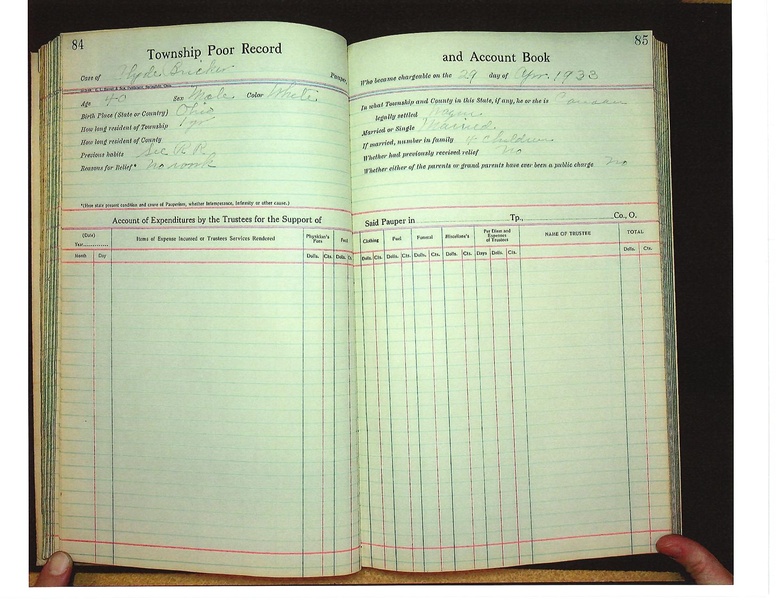 84
Township Poor Record
Case of Clyde Bricker Pauper,
Age 40 Sex Male Color White
Birth Place (State or Country) Ohio
How long resident of Township 1 yr
How long resident of County
Previous habits Sec R. R.
Reasons for Relief* no work
*(Here state present condition and cause of Pauperism, whether Intemperance, Infirmity or other cause.)
Account of Expenditures by the Trustees for the Support of
(Date)
Year
Month Day
Items of Expense Incurred or Trustees Services Rendered
Physician's Fees
Food
Dolls. Cts. Dolls. Cts.
85
and Account Book
Who became chargeable on the 29 day of Apr. 1933
In what Township and County in this State, if any, he or she is
legally settled
Married or Single Married
If married, number in family children
Whether had previously received relief No
Whether either of the parents or grand parents have ever been a public charge no
Said Pauper in Tp., Co., O.
Clothing Fuel Funeral Miscellane's Per Diem and Expenses of Trustees NAME OF TRUSTEE TOTAL
Dolls. Cts. Dolls. Cts. Dolls. Cts. Dolls. Cts. Days Dolls. Cts. Dolls. Cts.